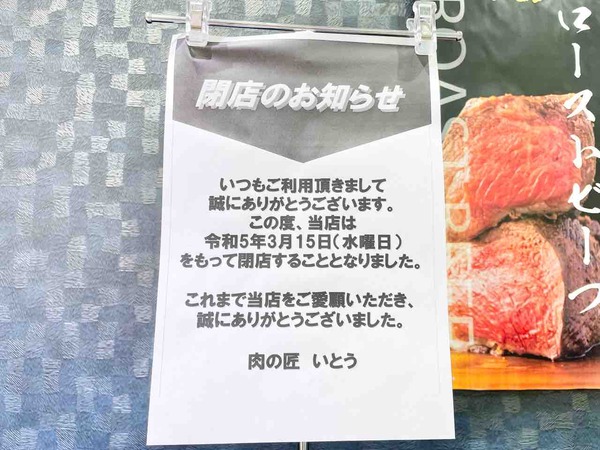 閉店のお知らせ
いつもご利用頂きまして
誠にありがとうございます。
この度、当店は
令和5年3月15日(水曜日)
をもって閉店することとなりました。
これまで当店をご愛願いただき、
誠にありがとうございました。
肉の匠 いとう
ロースおビーつ
ROAST BEEF